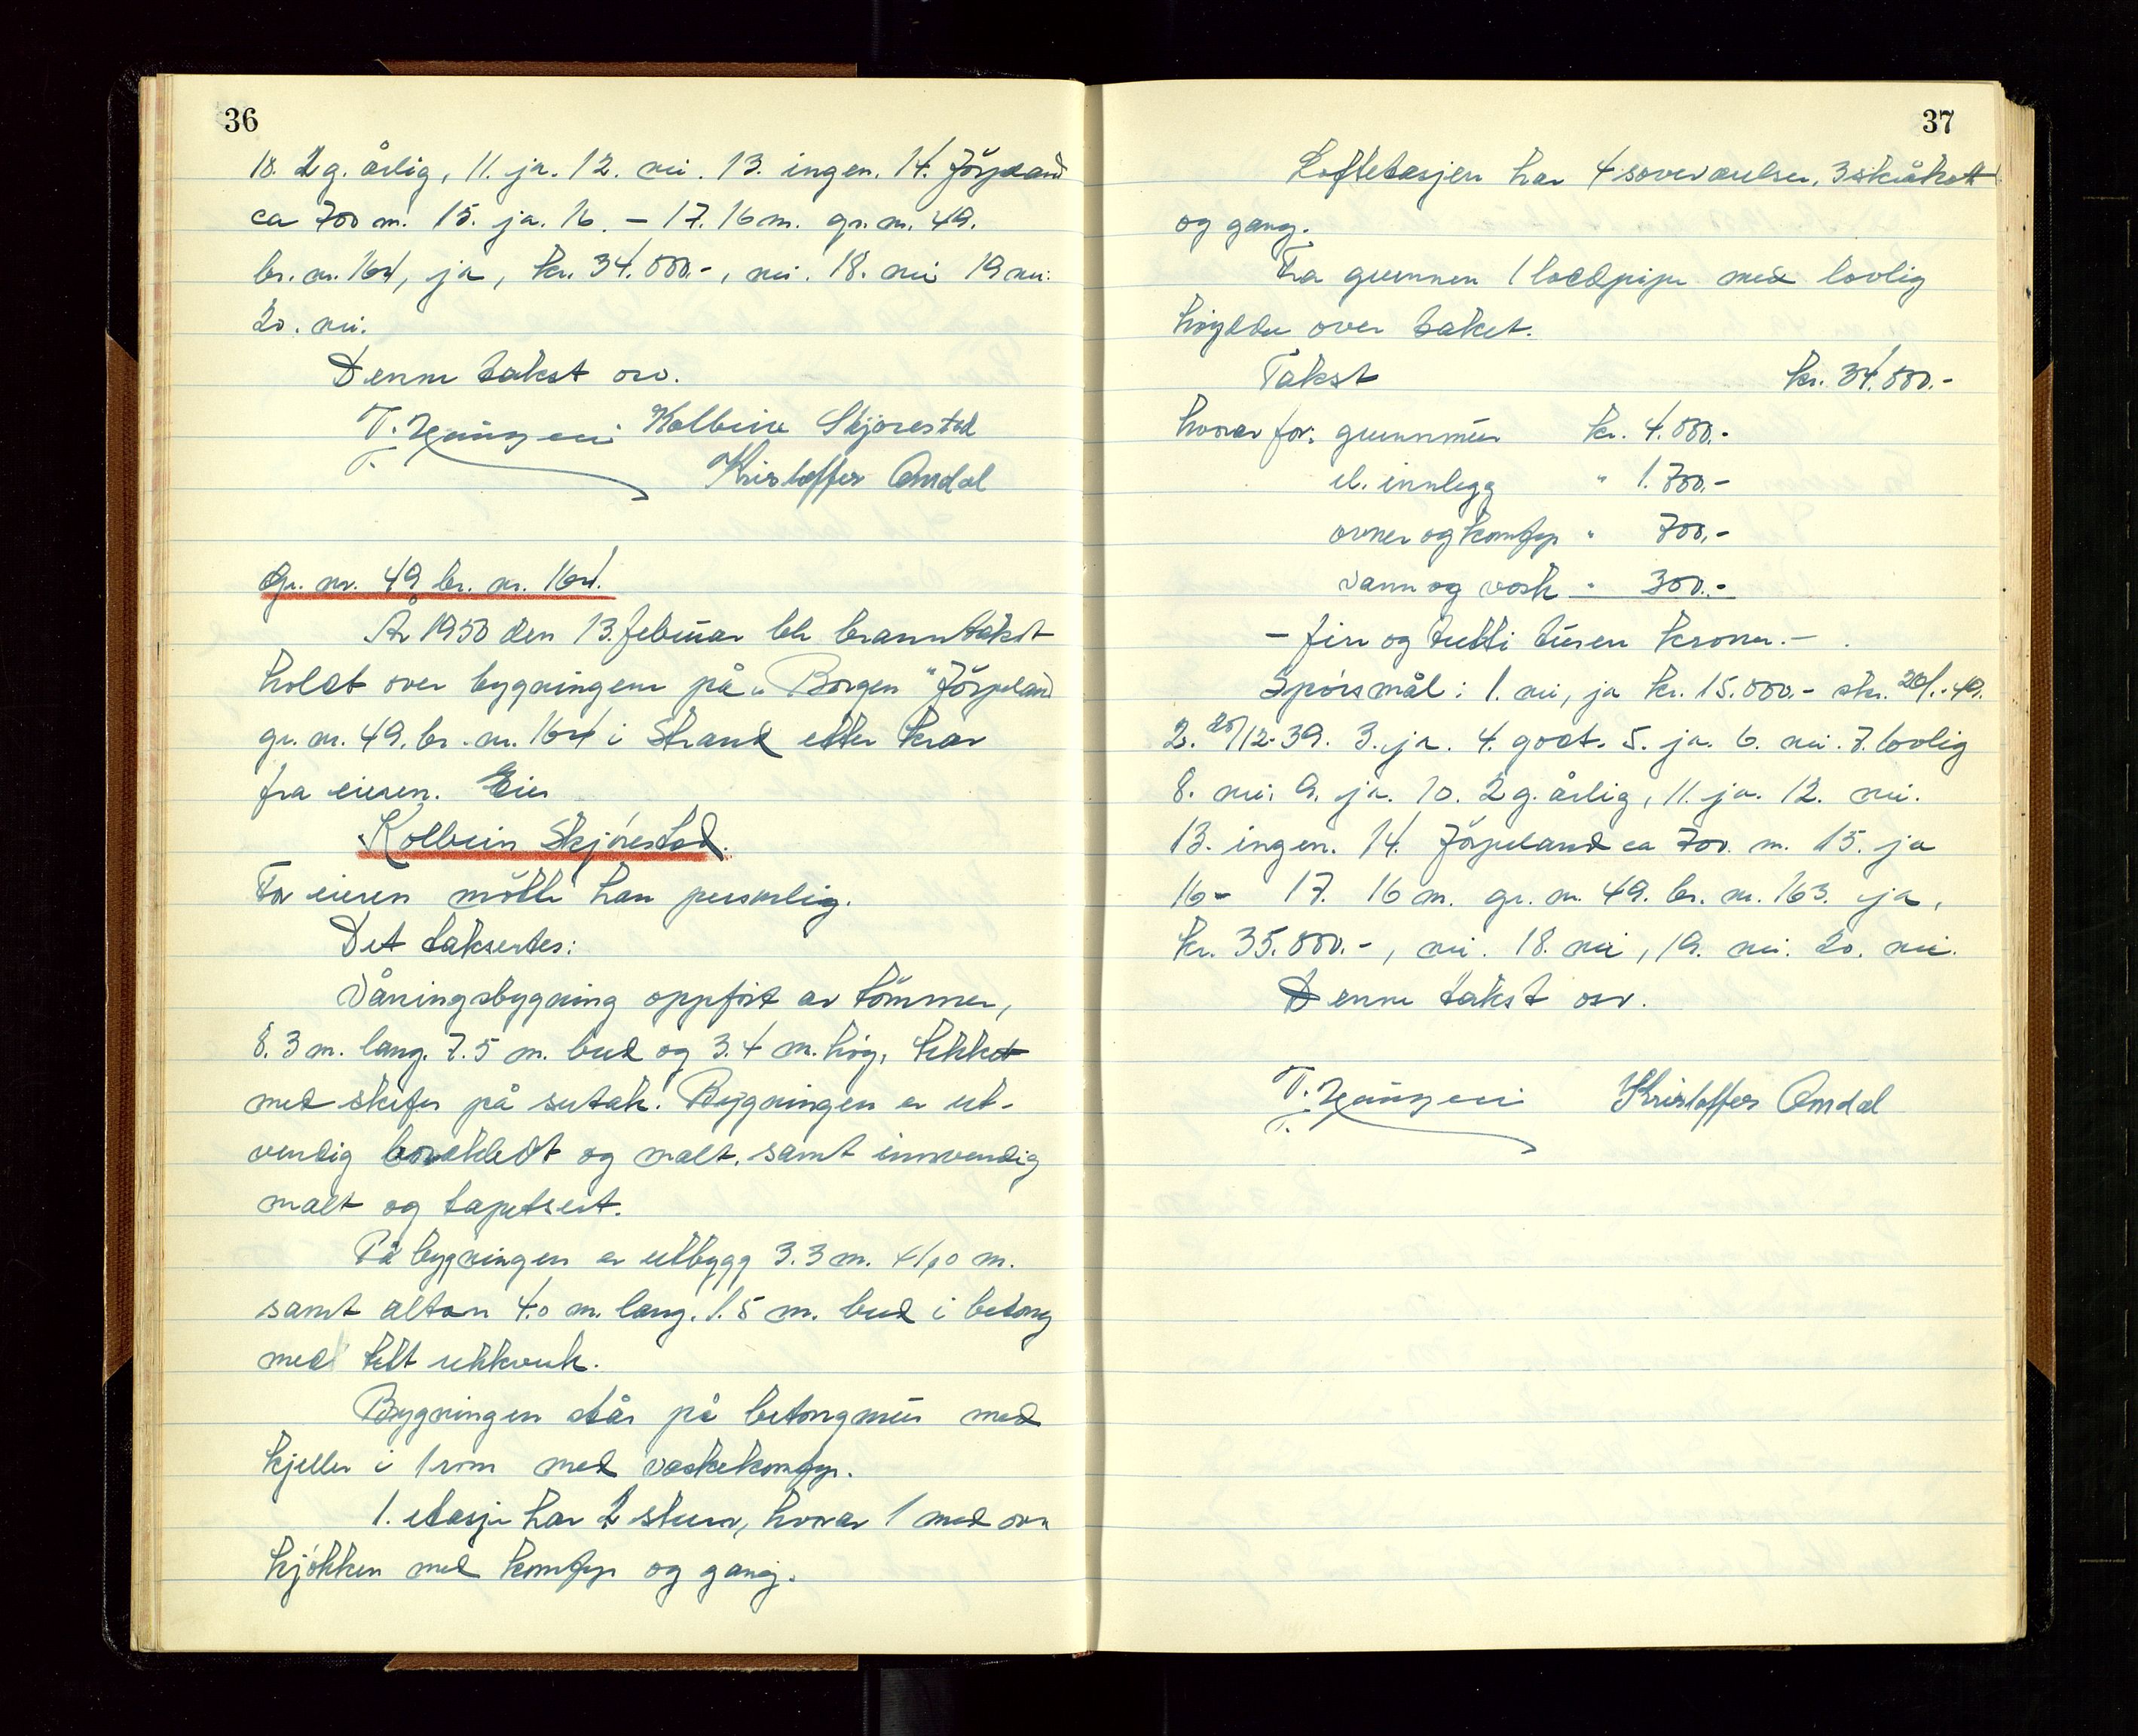 36
10. 2 g. årlig, 11. ja. 12. nei. 13. ingen. 14. Jörpeland
ca 700 m. 15. ja. 16. - 17. 16 m. gr. nr. 49.
br. nr. 164, ja, kr. 34.000.-, nei. 18. nei 19 nei.
20. nei.
Denne takst osv.
Kolbein Skjørestad
Kristoffer Omdal
Gr. nr. 49 br. nr. 164.
År 1950 den 13. februar ble branntakst
holdt over bygningene på "Borgen" Jörpeland
gr. nr. 49. br. nr. 164 i Strand etter krav
fra eieren. Eier
Kolbein Skjórestad.
For eieren mötte han personlig.
Det takseres:
Våningsbygning oppfört av tömmer,
8.3 m. lang. 7.5 m. bred og 3.4 m. hög, tekket
med skifer på sutak. Bygningen er ut-
vendig bordkledt og malt, samt innvendig
malt og tapetsert.
På bygningen er utbygg 3.3 m. x 1,0 m.
samt altan 4.0 m. lang. 1.5 m. bred i betong
med tett rekkverk.
Bygningen står på betongmur med
kjeller i 1 rom med vaskekomfyr.
1. etasje har 2 stuer, hvorav 1 med ovn
kjökken med komfyr og gang.
37
Loftetasjen har 4 soveværelser, 3 skråkott
og gang.
Fra grunnen 1 loddpipe med lovlig
höydde over taket.
Takst kr. 34.000.-
hvorav for: grunnmur kr. 4.000.-
el. innlegg " 1.700.-
ovner og komfyr " 700.-
vann og vask " 300.-
- fire og tretti tusen kroner.-
Spörsmål: 1. nei, ja kr. 15.000.- skr. 49.
2. 20/12-39. 3. ja. 4. godt. 5. ja. 6. nei. 7. lovlig
8. nei. 9. ja. 10. 2 g. årlig, 11. ja. 12. nei.
13. ingen. 14. Jörpeland ca 700. m. 15. ja
16- 17. 16 m. gr. nr. 49. br. nr. 163. ja,
kr. 35.000.-, nei. 18. nei, 19. nei. 20. nei.
Denne takst osv.
Kristoffer Omdal